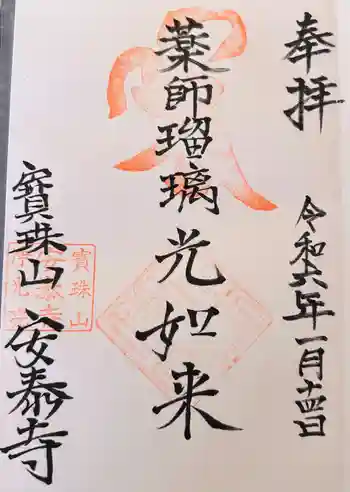 奉拝
令和六年一月十四日
薬師瑠璃光如来
寳珠山安泰寺
寳珠山